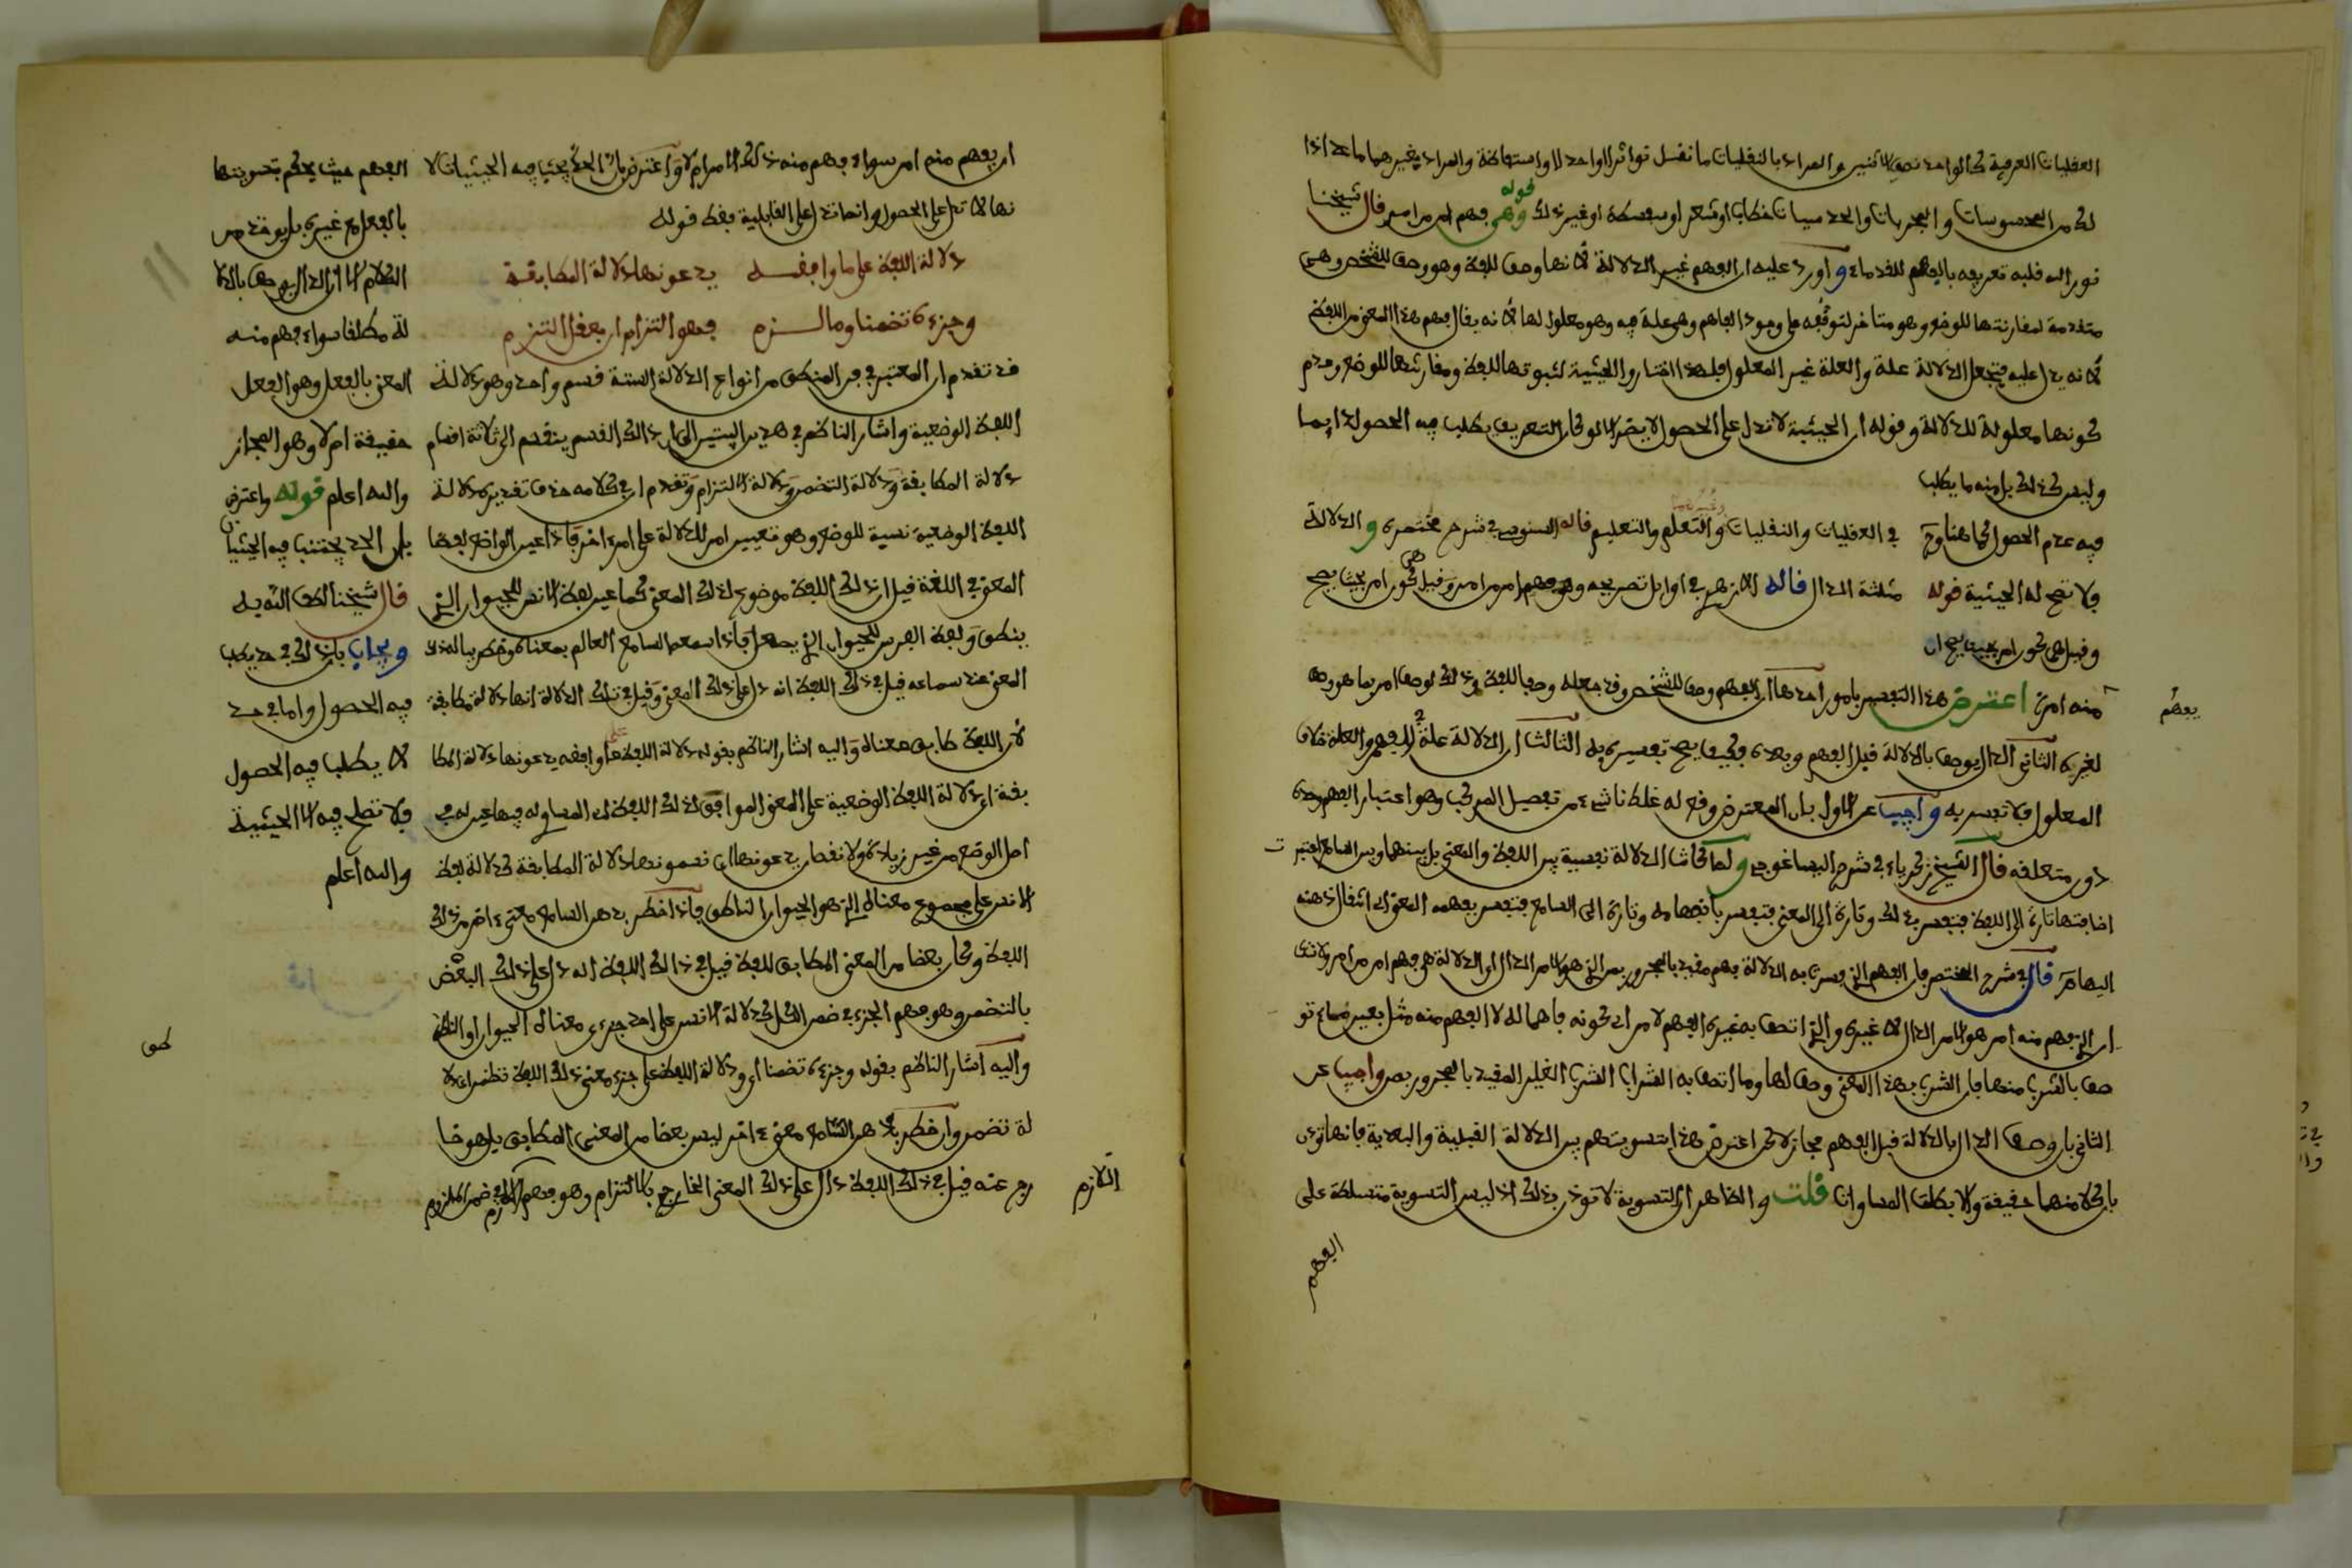 العقليات العرفية ككالواحد نصف الاثنين والمراد بالنقليات ما نقل تواترا او احدا او استفاضة والمراد بغيرهما ما عدا ذا
لك من المحسوسات والمجربات والحدسيات خطابا او شعر او سفسطة او غير ذلك قوله وهي فهم امر من امر قال شيخنا
نور الله قلبه تعريفه بالفهم للقدماء واورد عليه ان الفهم غير الدلالة لانها وصف للفظ وهو وصف للشخص وهي
متقدمة لمقارنتها للوضع وهو متاخر لتوقفه على وجود الفاهم وهي علة فيه وهو معلول لها لانه يقال فهم هذا المعنى من اللفظ
لانه يدل عليه فتجعل الدلالة علة والعلة غير المعلول فلهذا اختاروا الحيثية لثبوتها للفظ ومقارنتها للوضع وعدم
كونها معلولة للدلالة وقوله ان الحيثية لا تدل على الحصول لا يضر الا لو كان التعريف يطلب فيه الحصول دايما
وليس كذلك بل منه ما يطلب
فيه عدم الحصول كما هنا وح في العقليات والنقليات والتعلم والتعليم قاله السنوسي في شرح مختصره والدلالة
فلا تصح له الحيثية قوله مثلثة الدال قاله الازهري في اوايل تصريحه وهي فهم امر من امر وقيل هي كون امر بحيث يصح
وقيل هي كون امر بحيث يصح ان
منه امر اعترض هذا التفسير بامور احدها ان الفهم وصف للشخص وقد جعله وصفا للفظ وذلك لوصف امر بما هو وصف
يفهم
لغيره الثاني الدال يوصف بالدلالة قبل الفهم وبعده فكيف يصح تفسيره به الثالث ان الدلالة علة للفهم والعلة خلاف
المعلول فلا تفسر به واجيب عن الاول بان المعترض وقع له غلط ناشىء من تفصيل المركب وهو اعتبار الفهم وحده
دون متعلقه قال الشيخ زكرياء في شرح ايساغوجي ولما كانت الدلالة نسبية بين اللفظ والمعنى بل بينهما وبين السامع اعتبرت
اضافتها تارة الى اللفظ فتفسر بذلك وتارة الى المعنى فتفسر بانفهامه وتارة الى السامع فتفسر بفهمه المعنى اي انتقال ذهنه
اليها من قال في شرح المختصر فان الفهم الذي فسرت به الدلالة فهم مقيد بالمجرور بمن الذي هو الامر الدال او الدلالة هي فهم امر من امر
ان الذي فهم منه امر هو الامر الدال لا غيره والذي اتصف به غيره الفهم لامر اي كونه فاهما له لا الفهم منه مثل
صف بالشرب منها فان الشرب بهذا المعنى وصف لها وما اتصف به الشراب الشرب الغير المقيد بالمجرور بمن واجيب عن
الثاني بان وصف الدال بالدلالة قبل الفهم مجاز لاكن اعترض هذا بتسويتهم بين الدلالة القبلية والبعدية فانها تو
بان كلا منهما حقيقة ولا يطلق المساوات قلت والظاهر ان التسوية لا توخذ من ذلك اذ ليس التسوية متسلطة على
الفهم
ان يفهم منه امر سواء فهم منه ذلك الامر ام لا واعترض بان الحد يجتنب فيه الحيثيات لا
نها لا تدل على الحصول وانما تدل على القابلية فقط قوله
دلالة اللفظ على ما وافقه يدعونها دلالة المطابقة
وجزءه تضمنا وما لزم فهو التزام ان بعقل التزم
قد تقدم ان المعتبر في فن المنطق من انواع الدلالة الستة قسم واحد وهو دلالة
اللفظ الوضعية واشار الناظم في هذين البيتين الى ان ذالك القسم ينقسم الى ثلاثة اقسام
دلالة المطابقة ودلالة التضمن ودلالة الالتزام وتقدم ان في كلامه حذف تقديره دلالة
اللفظ الوضعية نسبة للوضع وهو تعيين امر للدلالة على امر اخر فاذا عين الواضع لفظا
المعنى في اللغة قيل ان ذلك اللفظ موضوع لذلك المعنى كما عين لفظ الانسان للحيوان الذي
ينطق ولفظ الفرس للحيوان الذي يصهل فاذا سمعه السامع العالم بمعناه وخطر بباله ذلك
المعنى عند سماعه قيل في ذلك اللفظ انه دل على ذلك المعنى وقيل في تلك الدلالة انها دلالة مطابقة
لان اللفظ طابق معناه واليه اشار الناظم بقوله دلالة اللفظ على ما وافقه يدعونها دلالة المطا
بقة اي دلالة اللفظ الوضعية على المعنى الموافق لذلك اللفظ اي المساوي له فيما عين له في
اصل الوضع من غير زيادة ولا نقصان يدعونها اي يسمونها دلالة المطابقة كدلالة لفظ
الانسان على مجموع معناه الذي هو الحيوان الناطق فاذا خطر بذهن السامع معنى اخر من ذلك
اللفظ وكان بعضا من المعنى المطابق للفظ قيل في ذالك اللفظ انه دل على ذلك البعض
بالتضمن وهو فهم الجزء في ضمن الكل كدلالة الانسان على احد جزءي معناه الحيوان او الناطق
واليه اشار الناظم بقوله وجزءه تضمنا اي ودلالة اللفظ على جزء معنى ذلك اللفظ تضمن اي دلا
لة تضمن وان خطر بذهن السامع معنى اخر ليس بعضا من المعنى المطابق بل هو خا
رج عنه قيل في ذلك اللفظ دال على ذلك المعنى الخارج بالالتزام وهو فهم اللازم في ضمن الملزوم
اللازم
الفهم حيث يحكم بتسويتها
بالفعل مع غيره بل يوخذ من
الكلام ان الدال يوصف بالدلا
لة مطلقا سواء فهم منه
المعنى بالفعل وهو الفعل
حقيقة ام لا وهو المجاز
والله اعلم قوله واعترض
بان الحد يجتنب فيه الحيثيات
قال شيخنا لطف الله به
ويجاب بان ذلك في حد يطلب
فيه الحصول واما في حد
لا يطلب فيه الحصول
فلا تصلح فيه الا الحيثية
والله اعلم